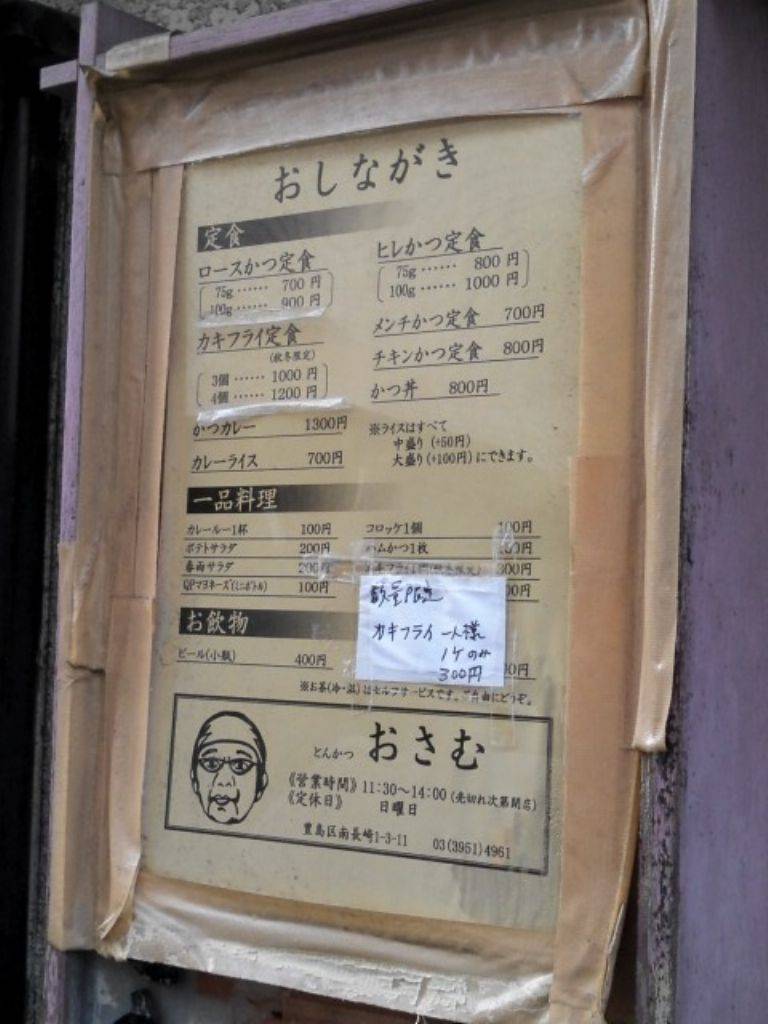 おしながき
定食
ロースかつ定食
75g …… 700 円
100g …… 900 円
カキフライ定食
(秋冬限定)
3個 …… 1000 円
4個 …… 1200 円
かつカレー 1300円
カレーライス 700円
ヒレかつ定食
75g …… 800 円
100g …… 1000 円
メンチかつ定食 700円
チキンかつ定食 800円
かつ丼 800円
※ライスはすべて
中盛り (+50円)
大盛り (+100円) にできます。
一品料理
カレールー1杯 100円
ポテトサラダ 200円
春雨サラダ 200円
QPマヨネーズ(ミニボトル) 100円
コロッケ1個 100円
ハムかつ1枚
300円
数量限定
カキフライ 一人様
1ケのみ
300円
お飲物
ビール(小瓶) 400円
※お茶(冷・温)はセルフサービスです。ご自由にどうぞ。
とんかつ おさむ
《営業時間》 11:30～14:00 (売切れ次第閉店)
《定休日》 日曜日
豊島区南長崎1-3-11 03(3951)4961